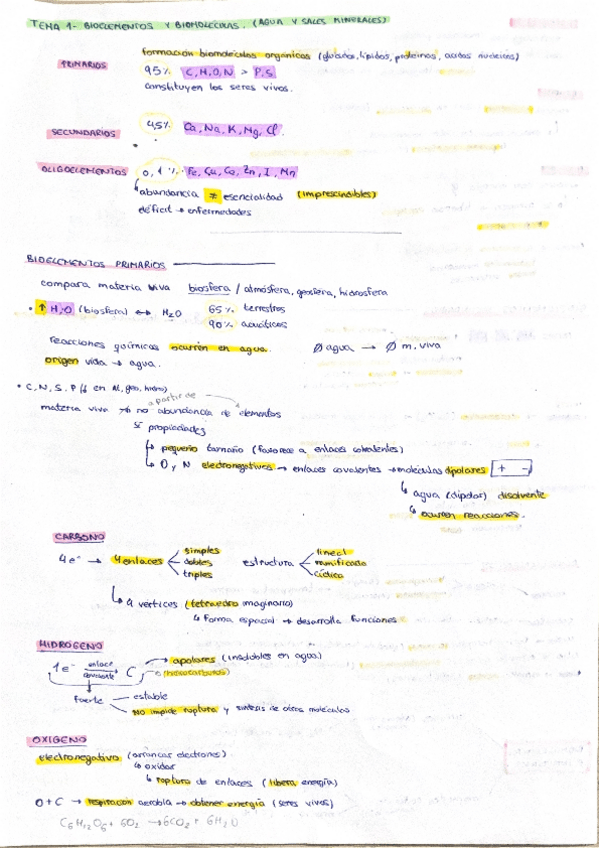 TEMA 1- BIOELEMENTOS Y BIOMOLÉCULAS. (AGUA Y SALES MINERALES)
formación biomoléculas orgánicas (glúcidos, lípidos, proteínas, ácidos nucleicos)
PRIMARIOS 95% C, H, O, N > P, S
constituyen los seres vivos.
SECUNDARIOS 4,5% Ca, Na, K, Mg, Cl.
OLIGOELEMENTOS 0,1% Fe, Cu, Co, Zn, I, Mn
↳ abundancia ≠ esencialidad (imprescindibles)
déficit → enfermedades
BIOELEMENTOS PRIMARIOS
compara materia viva biosfera / atmósfera, geosfera, hidrosfera
• ↑ H, O (biosfera) ↔ H2O 65% terrestres
90% acuáticos
reacciones químicas ocurren en agua. Ø agua → Ø m. viva
origen vida → agua.
• C, N, S, P
a partir de
materia viva → no abundancia de elementos
sí propiedades
↳ pequeño tamaño (favorece a enlaces covalentes)
↳ O y N electronegativos → enlaces covalentes → moléculas dipolares + -
↳ agua (dipolar) disolvente
↳ ocurren reacciones.
CARBONO
4e⁻ → 4 enlaces simples dobles triples estructura lineal ramificada cíclica
↳ 4 vértices (tetraedro imaginario)
↳ forma espacial → desarrolla funciones
HIDRÓGENO
1e⁻ enlace covalente → C → apolares (insolubles en agua)
(hidrocarburos)
fuerte estable
No impide ruptura y síntesis de otras moléculas
OXÍGENO
electronegativo (arrancar electrones)
↳ oxidar
↳ ruptura de enlaces (libera energía)
O + C → respiración aerobia → obtener energía (seres vivos)
C6H12O6 + 6O2 → 6CO2 + 6H2O